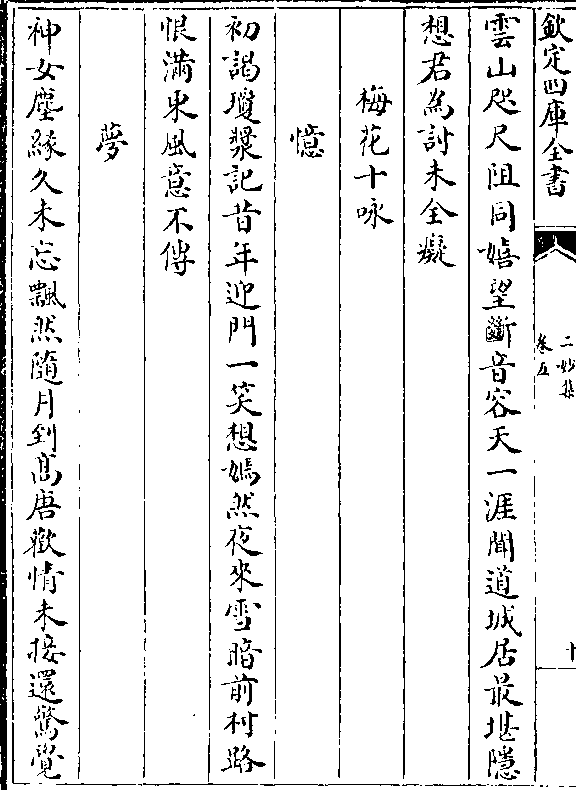 欽定四庫全書
二妙集
卷五
十
雲山咫尺阻同嬉望斷音容天一涯聞道城居最堪隱
想君為討未全癡
梅花十咏
憶
初謁瓊漿記昔年迎門一笑想嫣然夜來雪暗前村路
恨滿東風意不傳
夢
神女塵緣久未忘飄然隨月到髙唐歡情未接還驚覺